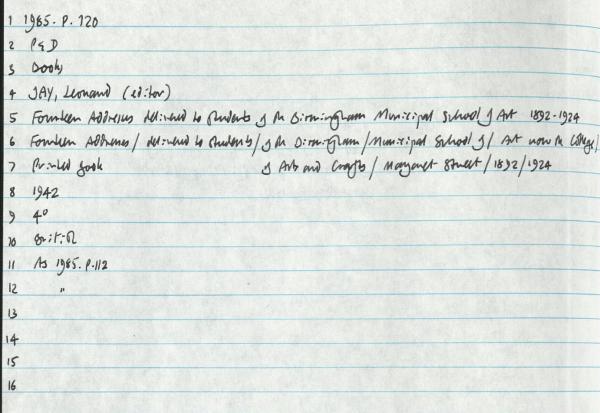 1 1985.P.120
2 P&D
3 Books
4 JAY, Leonard (editor)
5 Fourteen Addresses delivered to Students of the Birmingham Municipal School of Art 1892-1924
6 Fourteen Addresses / delivered to Students / of the Birmingham / Municipal School of / Art now the College /
7 Printed book of Arts and Crafts / Margaret Street / 1892 / 1924
8 1942
9 4º
10 British
11 As 1985.P.112
12 "
13
14
15
16